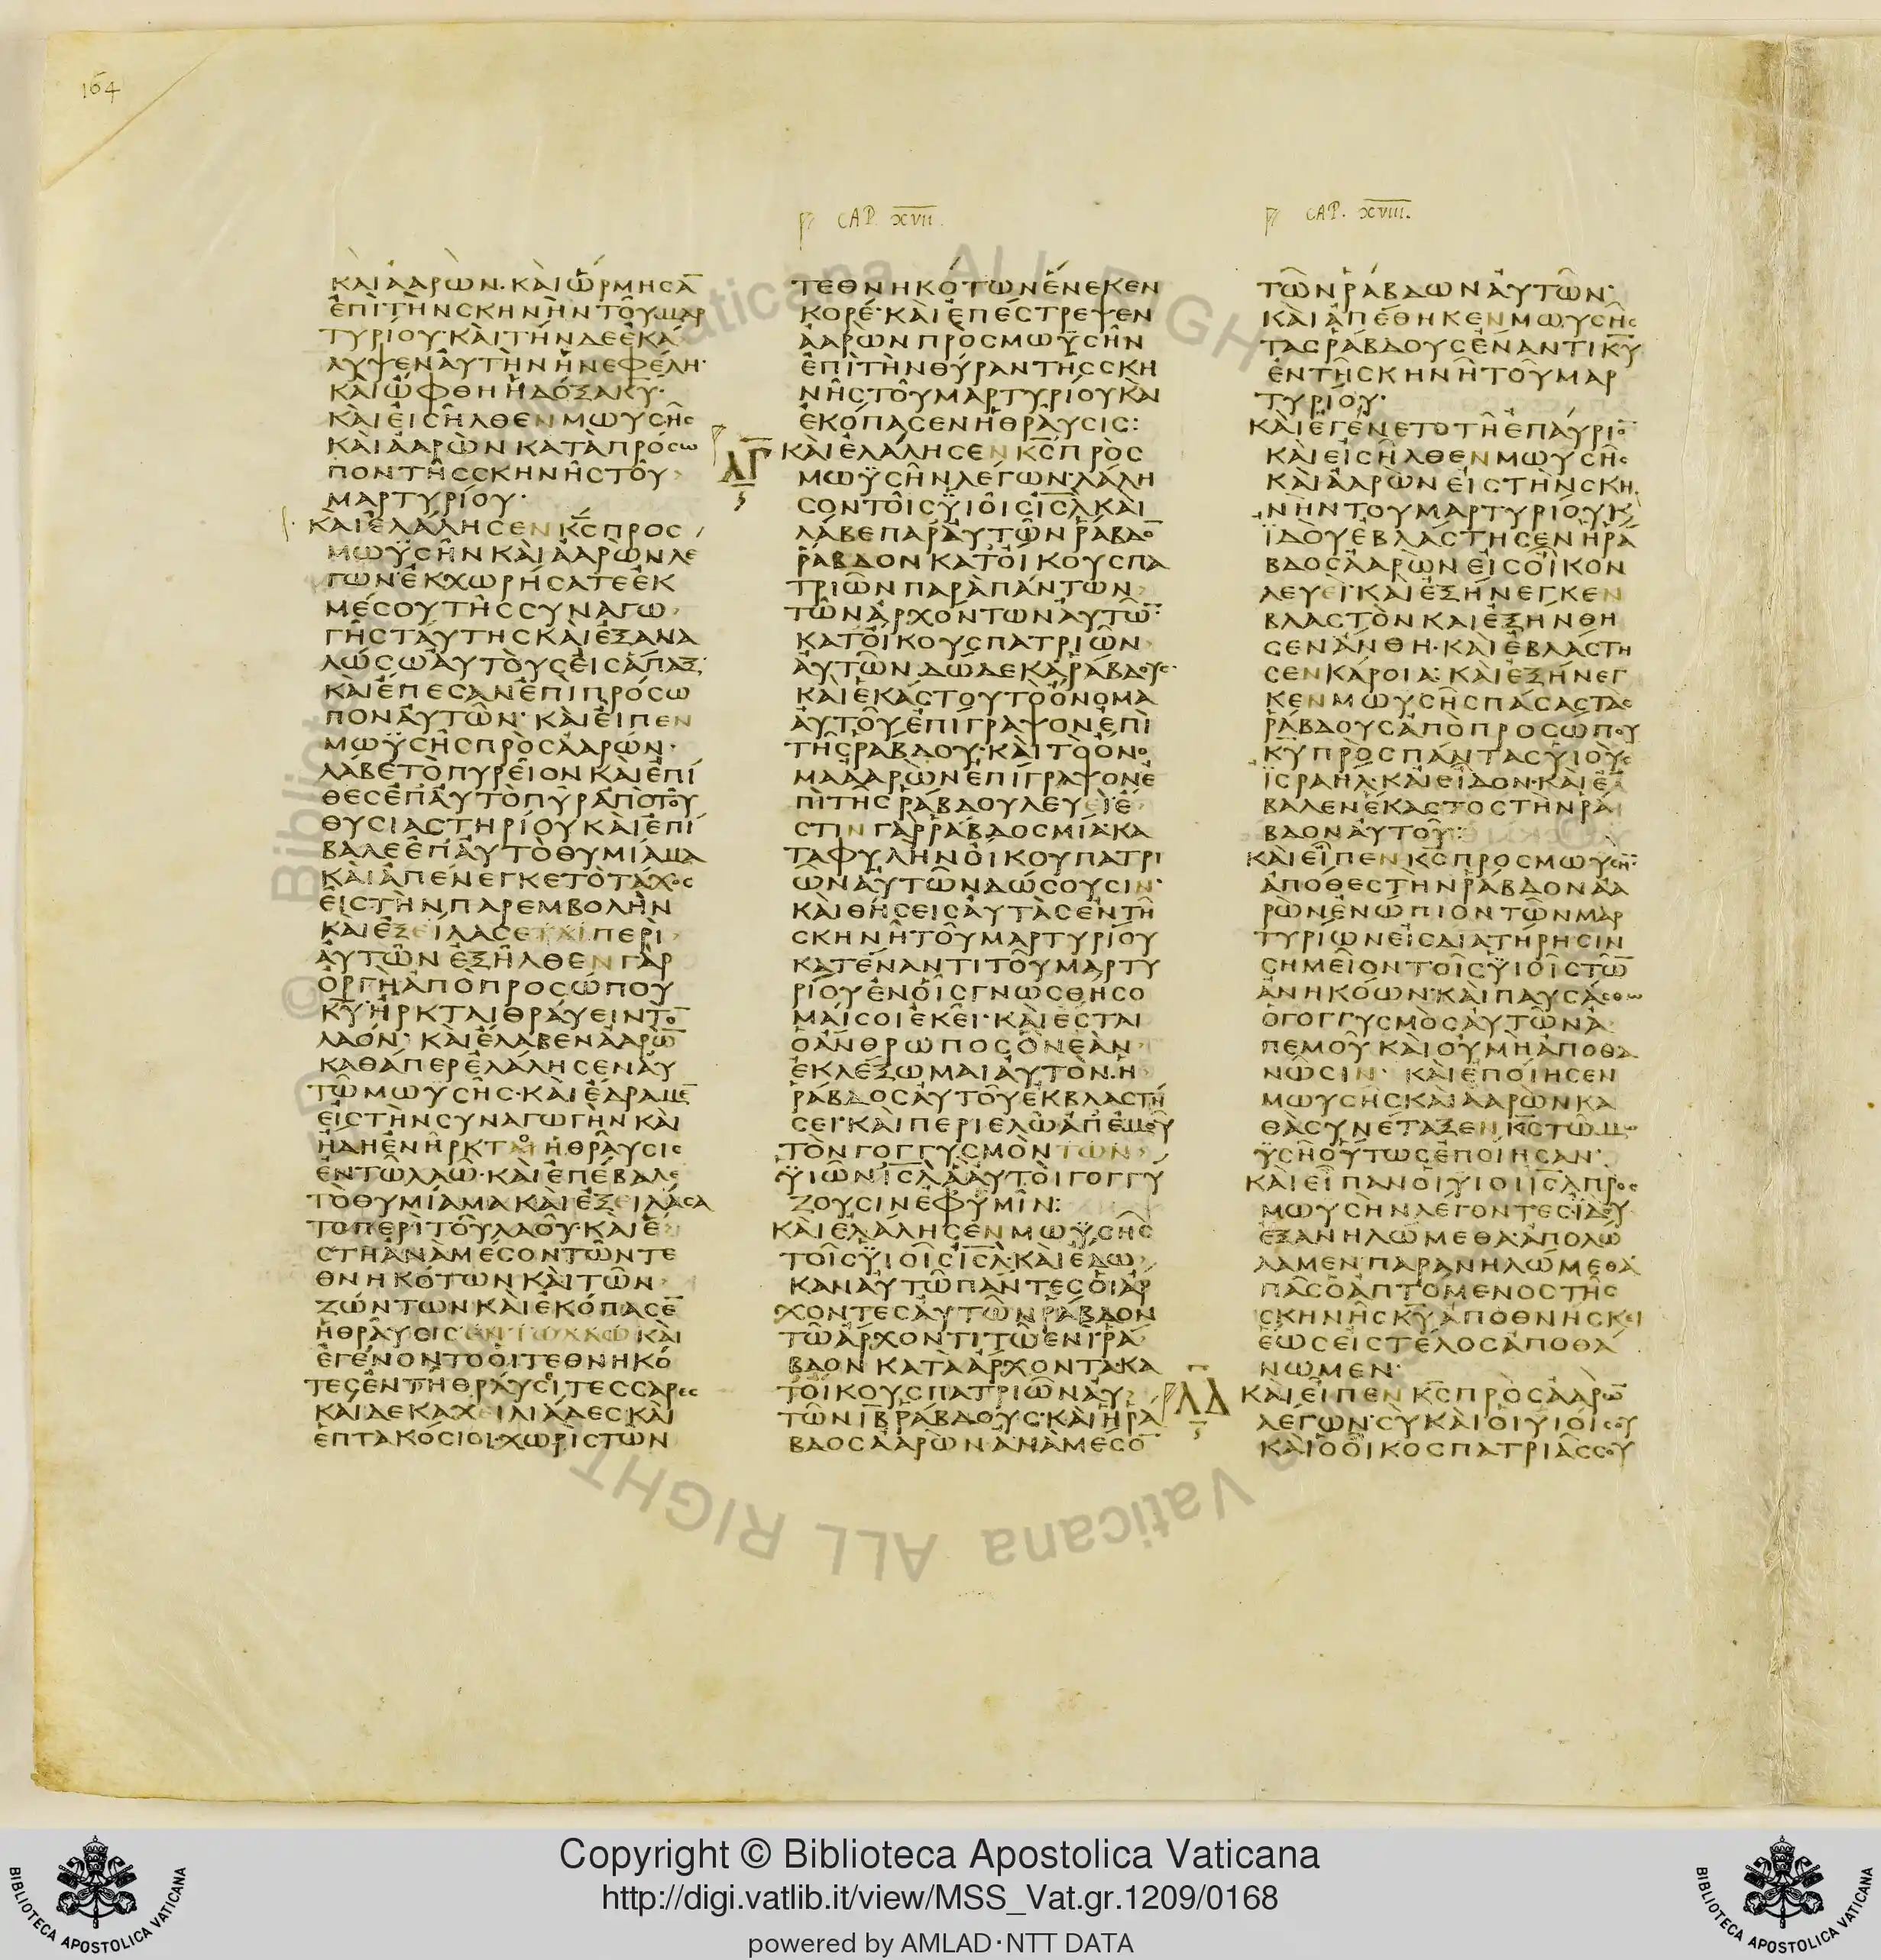 164
CAP. XVII.
CAP. XVIII.
ΚΑΙΑΑΡΩΝ·ΚΑΙΩΡΜΗϹΑ̅
ΕΠΙΤΗΝϹΚΗΝΗΝΤΟΥΜΑΡ
ΤΥΡΙΟΥ·ΚΑΙΤΗΝΔΕΕΚΑ
ΛΥΨΕΝΑΥΤΗΝΗΝΕΦΕΛΗ·
ΚΑΙΩΦΘΗΗΔΟΞΑΚ̅Υ̅·
ΚΑΙΕΙϹΗΛΘΕΝΜΩΥϹΗϹ
ΚΑΙΑΑΡΩΝΚΑΤΑΠΡΟϹΩ
ΠΟΝΤΗϹϹΚΗΝΗϹΤΟΥ
ΜΑΡΤΥΡΙΟΥ·
ΚΑΙΕΛΑΛΗϹΕΝΚ̅Ϲ̅ΠΡΟϹ
ΜΩΫϹΗΝΚΑΙΑΑΡΩΝΛΕ
ΓΩΝ·ΕΚΧΩΡΗϹΑΤΕΕΚ
ΜΕϹΟΥΤΗϹϹΥΝΑΓΩ
ΓΗϹΤΑΥΤΗϹΚΑΙΕΞΑΝΑ
ΛΩϹΩΑΥΤΟΥϹΕΙϹΑΠΑΞ·
ΚΑΙΕΠΕϹΑΝΕΠΙΠΡΟϹΩ
ΠΟΝΑΥΤΩΝ·ΚΑΙΕΙΠΕΝ
ΜΩΫϹΗϹΠΡΟϹΑΑΡΩΝ·
ΛΑΒΕΤΟΠΥΡΕΙΟΝΚΑΙΕΠΙ
ΘΕϹΕΠΑΥΤΟΠΥΡΑΠΟΤΟΥ
ΘΥϹΙΑϹΤΗΡΙΟΥΚΑΙΕΠΙ
ΒΑΛΕΕΠΑΥΤΟΘΥΜΙΑΜΑ
ΚΑΙΑΠΕΝΕΓΚΕΤΟΤΑΧΟϹ
ΕΙϹΤΗΝΠΑΡΕΜΒΟΛΗΝ
ΚΑΙΕΞΕΙΛΑϹΕΠΕΡΙ
ΑΥΤΩΝΕΞΗΛΘΕΝΓΑΡ
ΟΡΓΗΑΠΟΠΡΟϹΩΠΟΥ
Κ̅Υ̅·ΗΡΚΤΑΙΘΡΑΥΕΙΝΤΟ̅
ΛΑΟΝ·ΚΑΙΕΛΑΒΕΝΑΑΡΩ̅
ΚΑΘΑΠΕΡΕΛΑΛΗϹΕΝΑΥ
ΤΩΜΩΥϹΗϹ·ΚΑΙΕΔΡΑΜΕ̅
ΕΙϹΤΗΝϹΥΝΑΓΩΓΗΝΚΑΙ
ΗΔΗΕΝΗΡΚΤΟΗΘΡΑΥϹΙϹ
ΕΝΤΩΛΑΩ·ΚΑΙΕΠΕΒΑΛΕ
ΤΟΘΥΜΙΑΜΑΚΑΙΕΞΕΙΛΑϹΑ
ΤΟΠΕΡΙΤΟΥΛΑΟΥ·ΚΑΙΕ
ϹΤΗΑΝΑΜΕϹΟΝΤΩΝΤΕ
ΘΝΗΚΟΤΩΝΚΑΙΤΩΝ
ΖΩΝΤΩΝΚΑΙΕΚΟΠΑϹΕ̅
ΗΘΡΑΥϹΙϹΕΝΤΩΛΑΩΚΑΙ
ΕΓΕΝΟΝΤΟΟΙΤΕΘΝΗΚΟ
ΤΕϹΕΝΤΗΘΡΑΥϹΙΤΕϹϹΑΡΕϹ
ΚΑΙΔΕΚΑΧΕΙΛΙΑΔΕϹΚΑΙ
ΕΠΤΑΚΟϹΙΟΙ·ΧΩΡΙϹΤΩΝ
ΤΕΘΝΗΚΟΤΩΝΕΝΕΚΕΝ
ΚΟΡΕ·ΚΑΙΕΠΕϹΤΡΕΨΕΝ
ΑΑΡΩΝΠΡΟϹΜΩΫϹΗΝ
ΕΠΙΤΗΝΘΥΡΑΝΤΗϹϹΚΗ
ΝΗϹΤΟΥΜΑΡΤΥΡΙΟΥΚΑΙ
ΕΚΟΠΑϹΕΝΗΘΡΑΥϹΙϹ:
ΛΓ ΚΑΙΕΛΑΛΗϹΕΝΚ̅Ϲ̅ΠΡΟϹ
ΜΩΫϹΗΝΛΕΓΩΝ·ΛΑΛΗ
ϹΟΝΤΟΙϹΫΙΟΙϹΙ̅Ϲ̅Λ̅ΚΑΙ
ΛΑΒΕΠΑΡΑΥΤΩΝΡΑΒΔΟ̅
ΡΑΒΔΟΝΚΑΤΟΙΚΟΥϹΠΑ
ΤΡΙΩΝΠΑΡΑΠΑΝΤΩΝ
ΤΩΝΑΡΧΟΝΤΩΝΑΥΤΩ̅·
ΚΑΤΟΙΚΟΥϹΠΑΤΡΙΩΝ
ΑΥΤΩΝΔΩΔΕΚΑΡΑΒΔΟΥϹ·
ΚΑΙΕΚΑϹΤΟΥΤΟΟΝΟΜΑ
ΑΥΤΟΥΕΠΙΓΡΑΨΟΝΕΠΙ
ΤΗϹΡΑΒΔΟΥ·ΚΑΙΤΟΟΝΟ
ΜΑΑΑΡΩΝΕΠΙΓΡΑΨΟΝΕ
ΠΙΤΗϹΡΑΒΔΟΥΛΕΥΕΙ·Ε
ϹΤΙΝΓΑΡΡΑΒΔΟϹΜΙΑ·ΚΑ
ΤΑΦΥΛΗΝΟΙΚΟΥΠΑΤΡΙ
ΩΝΑΥΤΩΝΔΩϹΟΥϹΙΝ·
ΚΑΙΘΗϹΕΙϹΑΥΤΑϹΕΝΤΗ
ϹΚΗΝΗΤΟΥΜΑΡΤΥΡΙΟΥ
ΚΑΤΕΝΑΝΤΙΤΟΥΜΑΡΤΥ
ΡΙΟΥΕΝΟΙϹΓΝΩϹΘΗϹΟ
ΜΑΙϹΟΙΕΚΕΙ·ΚΑΙΕϹΤΑΙ
ΟΑΝΘΡΩΠΟϹΟΝΕΑΝ
ΕΚΛΕΞΩΜΑΙΑΥΤΟΝ·Η
ΡΑΒΔΟϹΑΥΤΟΥΕΚΒΛΑϹΤΗ
ϹΕΙ·ΚΑΙΠΕΡΙΕΛΩΑΠΕΜΟΥ
ΤΟΝΓΟΓΓΥϹΜΟΝΤΩΝ
ΫΙΩΝΙ̅Ϲ̅Λ̅ΑΑΥΤΟΙΓΟΓΓΥ
ΖΟΥϹΙΝΕΦΥΜΙΝ:
ΚΑΙΕΛΑΛΗϹΕΝΜΩΫϹΗϹ
ΤΟΙϹΫΙΟΙϹΙ̅Ϲ̅Λ̅·ΚΑΙΕΔΩ
ΚΑΝΑΥΤΩΠΑΝΤΕϹΟΙΑΡ
ΧΟΝΤΕϹΑΥΤΩΝΡΑΒΔΟΝ
ΤΩΑΡΧΟΝΤΙΤΩΕΝΙ·ΡΑ
ΒΔΟΝΚΑΤΑΑΡΧΟΝΤΑ·ΚΑ
ΤΟΙΚΟΥϹΠΑΤΡΙΩΝΑΥ
ΤΩΝΙ̅Β̅ΡΑΒΔΟΥϹ·ΚΑΙΗΡΑ
ΒΔΟϹΑΑΡΩΝ·ΑΝΑΜΕϹΟ̅
ΤΩΝΡΑΒΔΩΝΑΥΤΩΝ·
ΚΑΙΑΠΕΘΗΚΕΝΜΩΥϹΗϹ
ΤΑϹΡΑΒΔΟΥϹΕΝΑΝΤΙΚ̅Υ̅
ΕΝΤΗϹΚΗΝΗΤΟΥΜΑΡ
ΤΥΡΙΟΥ·
ΚΑΙΕΓΕΝΕΤΟΤΗΕΠΑΥΡΙΟ̅
ΚΑΙΕΙϹΗΛΘΕΝΜΩΥϹΗϹ
ΚΑΙΑΑΡΩΝΕΙϹΤΗΝϹΚΗ
ΝΗΝΤΟΥΜΑΡΤΥΡΙΟΥΚ
ΪΔΟΥΕΒΛΑϹΤΗϹΕΝΗΡΑ
ΒΔΟϹΑΑΡΩΝΕΙϹΟΙΚΟΝ
ΛΕΥΕΙ·ΚΑΙΕΞΗΝΕΓΚΕΝ
ΒΛΑϹΤΟΝΚΑΙΕΞΗΝΘΗ
ϹΕΝΑΝΘΗ·ΚΑΙΕΒΛΑϹΤΗ
ϹΕΝΚΑΡΟΙΑ:ΚΑΙΕΞΗΝΕΓ
ΚΕΝΜΩΥϹΗϹΠΑϹΑϹΤΑϹ
ΡΑΒΔΟΥϹΑΠΟΠΡΟϹΩΠΟΥ
Κ̅Υ̅ΠΡΟϹΠΑΝΤΑϹΫΙΟΥϹ
ΪϹΡΑΗΛ·ΚΑΙΕΙΔΟΝ·ΚΑΙΕΛ
ΒΑΛΕΝΕΚΑϹΤΟϹΤΗΝΡΑ
ΒΔΟΝΑΥΤΟΥ:
ΚΑΙΕΙΠΕΝΚ̅Ϲ̅ΠΡΟϹΜΩΥϹΗ̅·
ΑΠΟΘΕϹΤΗΝΡΑΒΔΟΝΑΑ
ΡΩΝΕΝΩΠΙΟΝΤΩΝΜΑΡ
ΤΥΡΙΩΝΕΙϹΔΙΑΤΗΡΗϹΙΝ
ϹΗΜΕΙΟΝΤΟΙϹΫΙΟΙϹΤΩ̅
ΑΝΗΚΟΩΝ·ΚΑΙΠΑΥϹΑϹΘΩ
ΟΓΟΓΓΥϹΜΟϹΑΥΤΩΝΑ
ΠΕΜΟΥΚΑΙΟΥΜΗΑΠΟΘΑ
ΝΩϹΙΝ·ΚΑΙΕΠΟΙΗϹΕΝ
ΜΩΥϹΗϹΚΑΙΑΑΡΩΝΚΑ
ΘΑϹΥΝΕΤΑΞΕΝΚ̅Ϲ̅ΤΩΜΩ
ΫϹΗΟΥΤΩϹΕΠΟΙΗϹΑΝ·
ΚΑΙΕΙΠΑΝΟΙΥΙΟΙΙ̅Ϲ̅Λ̅ΠΡΟϹ
ΜΩΥϹΗΝΛΕΓΟΝΤΕϹ·ΪΔΟΥ
ΕΞΑΝΗΛΩΜΕΘΑ·ΑΠΟΛΩ
ΛΑΜΕΝ·ΠΑΡΑΝΗΛΩΜΕΘΑ
ΠΑϹΟΑΠΤΟΜΕΝΟϹΤΗϹ
ϹΚΗΝΗϹΚ̅Υ̅ΑΠΟΘΝΗϹΚΕΙ
ΕΩϹΕΙϹΤΕΛΟϹΑΠΟΘΑ
ΝΩΜΕΝ·
ΛΔ ΚΑΙΕΙΠΕΝΚ̅Ϲ̅ΠΡΟϹΑΑΡΩ̅
ΛΕΓΩΝ·ϹΥΚΑΙΟΙΥΙΟΙϹΟΥ
ΚΑΙΟΟΙΚΟϹΠΑΤΡΙΑϹϹΟΥ
Copyright © Biblioteca Apostolica Vaticana
http://digi.vatlib.it/view/MSS_Vat.gr.1209/0168
powered by AMLAD·NTT DATA
BIBLIOTECA APOSTOLICA VATICANA
BIBLIOTECA APOSTOLICA VATICANA